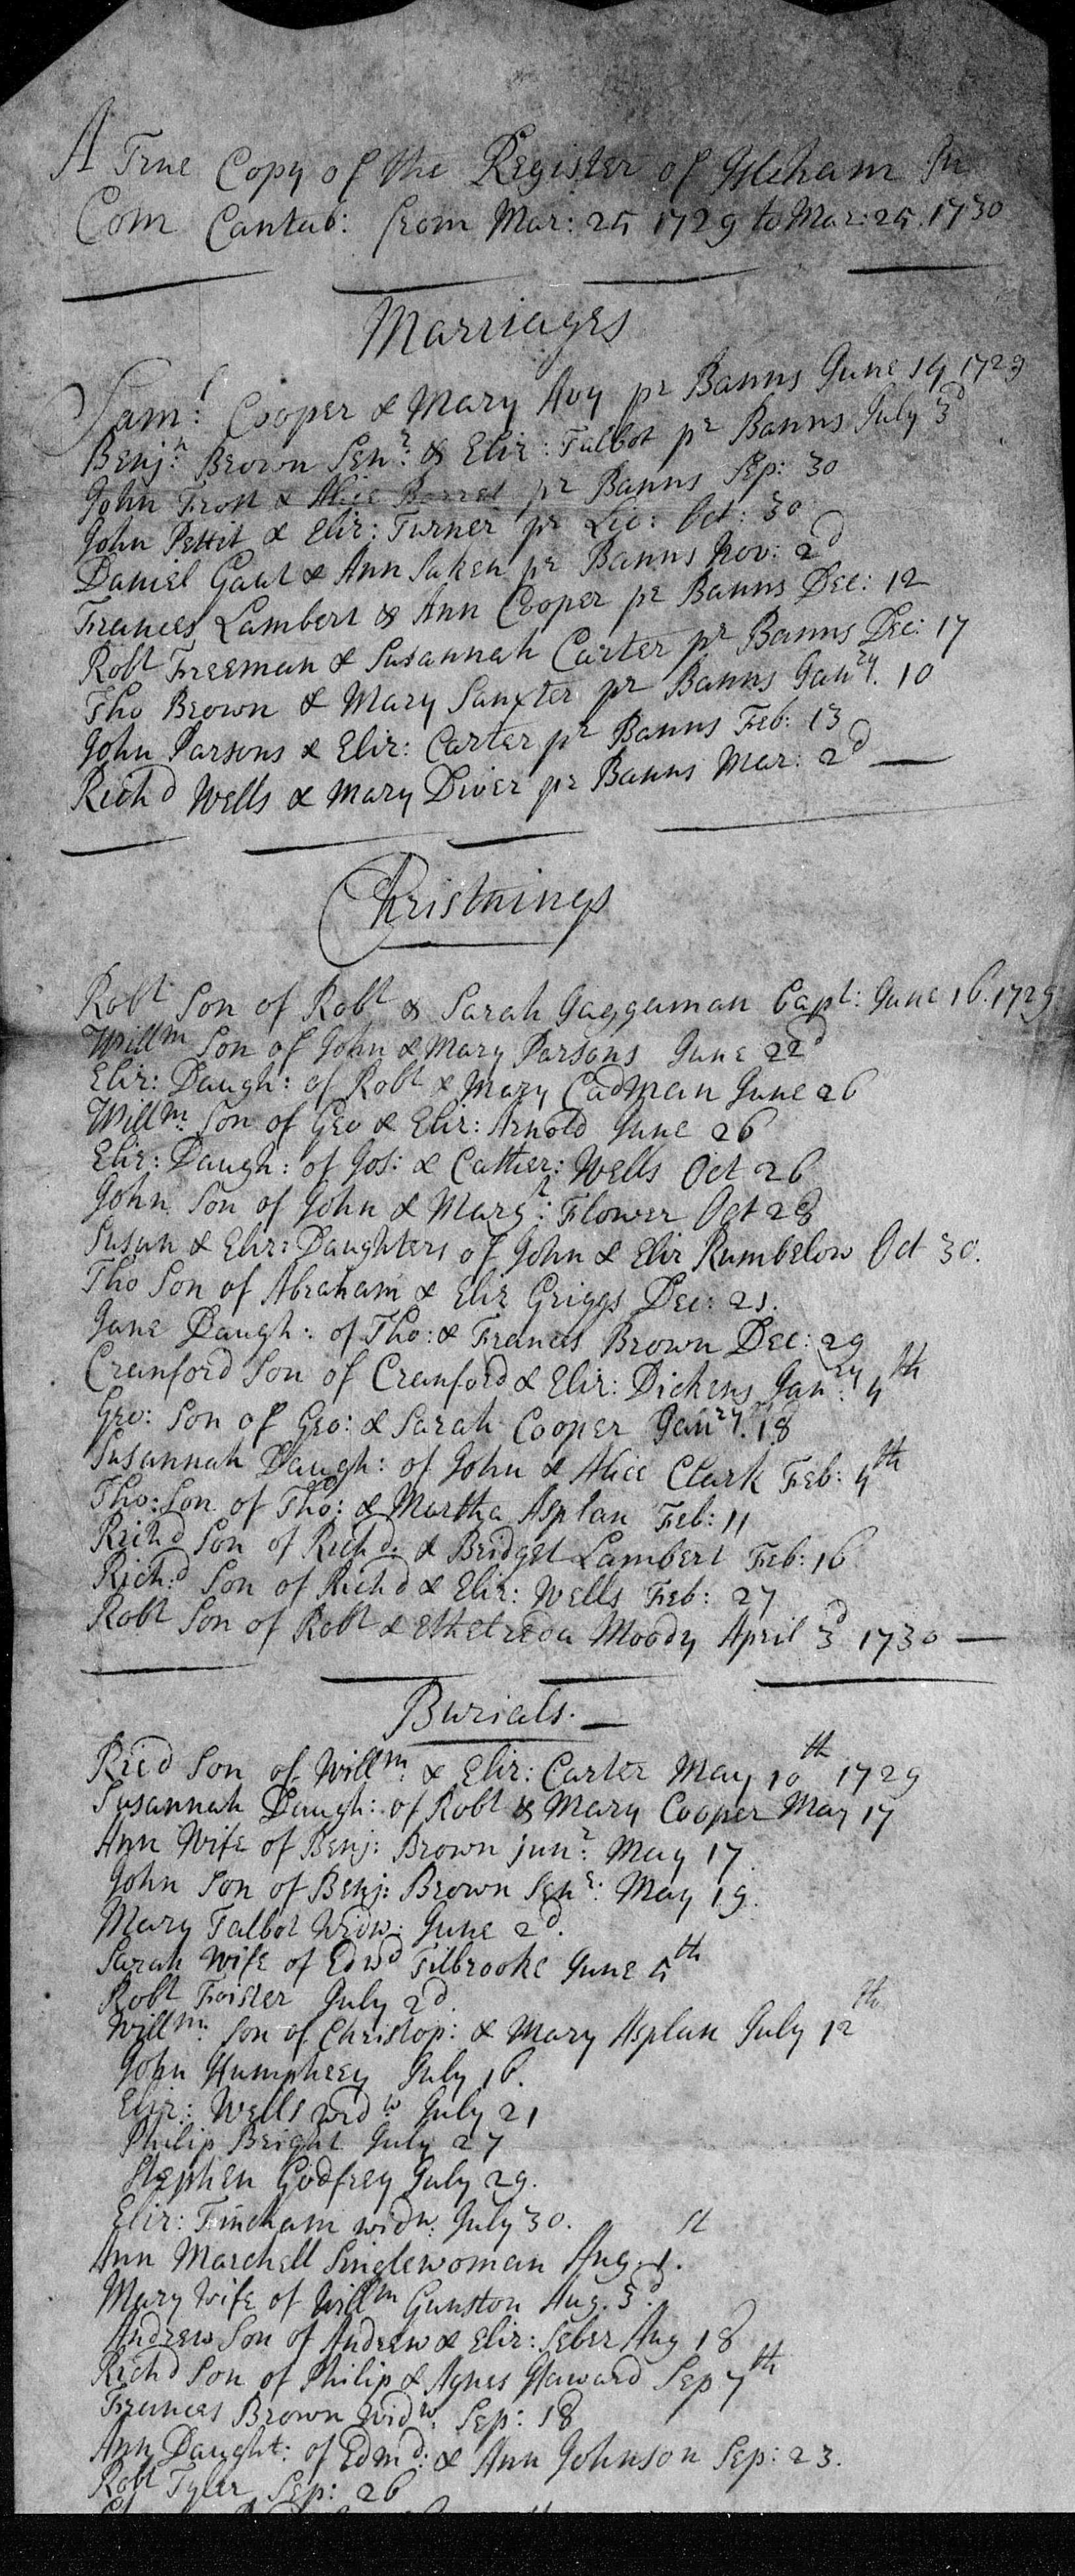 A True Copy of the Register of Isleham In
Com Cantab: from Mar: 25 1729 to Mar: 25. 1730
Marriages
Saml: Cooper & Mary Avy pr Banns June 19 1729
Benj:n Brown Senr: & Eliz: Talbot pr Banns July 3d
John Frost & Alice Barret pr Banns Sep: 30
John Pettit & Eliz: Turner pr Lic: Oct: 30
Daniel Gaut & Ann Saken pr Banns Nov: 2d
Frances Lambert & Ann Cooper pr Banns Dec: 12
Robt Freeman & Susannah Carter pr Banns Dec: 17
Tho Brown & Mary Sanxter pr Banns Janry. 10
John Parsons & Eliz: Carter pr Banns Feb: 13
Richd Wells & Mary Diver pr Banns Mar: 2d
Christnings
Robt Son of Robt & Sarah Jaggaman Bapt: June 16. 1729
Willm Son of John & Mary Parsons June 22d
Eliz: Daugh: of Robt & Mary Cadman June 26
Willm: Son of Geo & Eliz: Arnold June 26
Eliz: Daugh: of Jos: & Cather: Wells Oct 26
John Son of John & Margr: Flower Oct 28
Susan & Eliz: Daughters of John & Eliz Rumbelow Oct 30.
Tho Son of Abraham & Eliz Griggs Dec: 21.
Jane Daugh: of Tho: & Frances Brown Dec: 29
Cranford Son of Cranford & Eliz: Dickens Janry: 4th
Geo: Son of Geo: & Sarah Cooper Janry. 18
Susannah Daugh: of John & Alice Clark Feb: 4th
Tho: Son of Tho: & Martha Asplan Feb: 11
Richd Son of Richd. & Bridget Lambert Feb: 16
Rich:d Son of Richd & Eliz: Wells Feb: 27
Robt Son of Robt & Etheldreda Moody April 3d 1730
Burials.
Ricd Son of Willm: & Eliz: Carter May 10th 1729
Susannah Daugh: of Robt & Mary Cooper May 17
Ann Wife of Benj: Brown junr: May 17.
John Son of Benj: Brown Senr: May 19.
Mary Talbot Widw: June 2d.
Sarah Wife of Edwd Tilbrooke June 5th
Robt Foister July 2d.
Willm: Son of Christop: & Mary Asplan July 12th
John Humphrey July 16.
Eliz: Wells widw: July 21
Philip Bright July 27
Stephen Godfrey July 29.
Eliz: Fincham widw: July 30.
Ann Marchell Singlewoman Aug: 1st.
Mary Wife of Willm Gunston Aug. 3d.
Andrew Son of Andrew & Eliz: Seber Aug 18
Richd Son of Philip & Agnes Haward Sep 7th
Frances Brown Widw. Sep: 18
Ann Daught: of Edmd: & Ann Johnson Sep: 23.
Robt Tyler Sep: 26